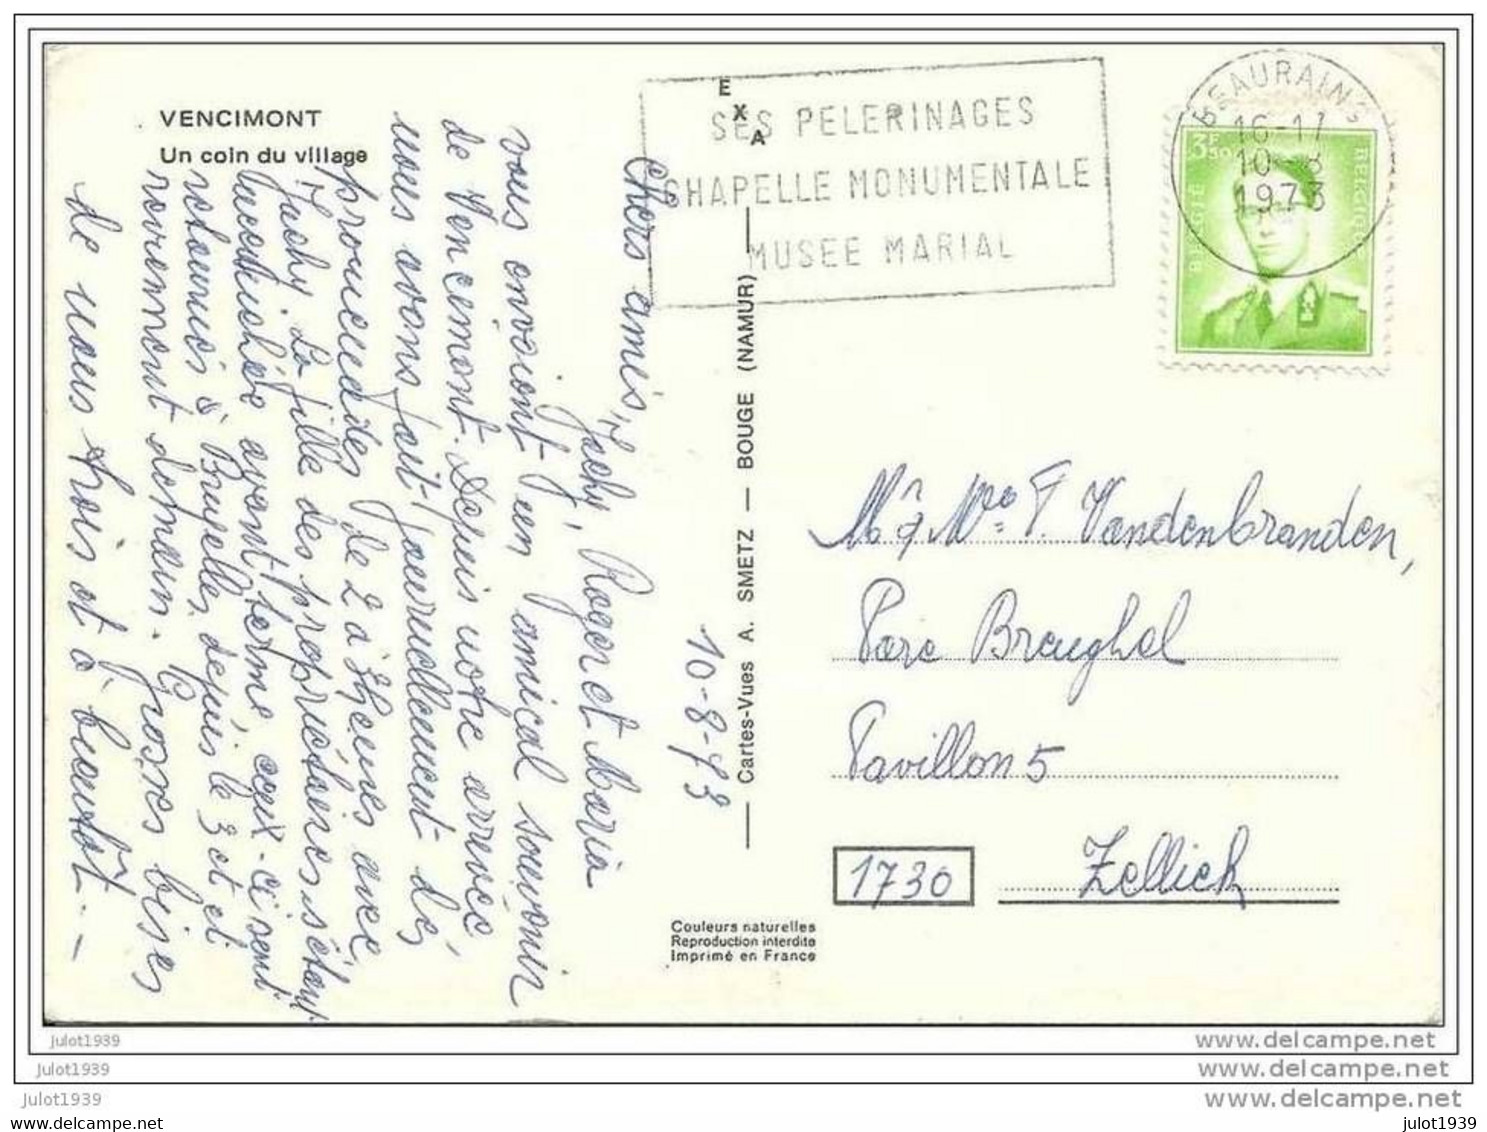 VENCIMONT
Un coin du village
EXA
SES PELERINAGES
CHAPELLE MONUMENTALE
MUSEE MARIAL
BEAURAING
16-17
10-8
1973
3F50
BELGIË
BELGIQUE
10-8-73
Chers amis,
Jacky, Roger et Maria
vous envoient un amical souvenir
de Vencimont. Depuis notre arrivée,
nous avons fait journellement des
promenades de 2 à 3 heures avec
Jacky. La fille des propriétaires s'étant
ayant terme, ceux-ci sont
retournés à Bruxelles, depuis le 3 et et
reviennent demain. Grosses bises
de nous trois et à bientôt. -
Cartes-Vues A. SMETZ — BOUGE (NAMUR)
Mr & Mme F. Vandenbranden,
Parc Breughel
Pavillon 5
1730 Zellick
Couleurs naturelles
Reproduction interdite
Imprimé en France
julot1939
julot1939
julot1939
www.delcampe.net
www.delcampe.net
www.delcampe.net
www.delcampe.net
julot1939